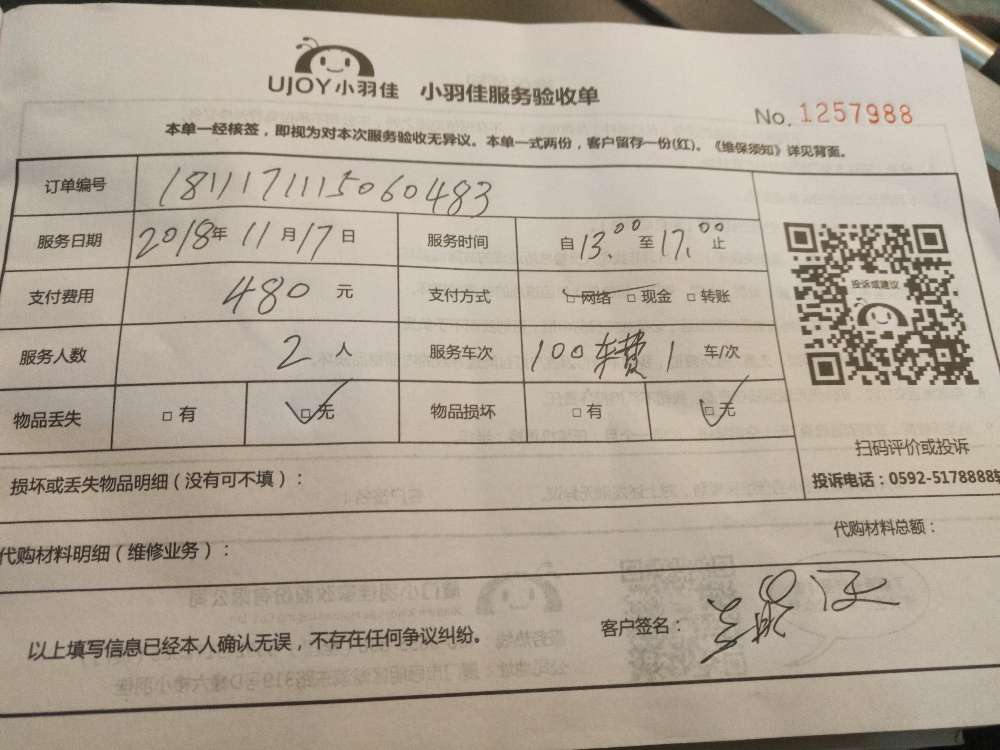 UJOY小羽佳 小羽佳服务验收单
No. 1257988
本单一经核签，即视为对本次服务验收无异议。本单一式两份，客户留存一份(红)。《维保须知》详见背面。
订单编号 1811171115060483
服务日期 2018年 11月17日 服务时间 自13:00至17:00止
支付费用 480元 支付方式 □网络 □现金 □转账
服务人数 2人 服务车次 100车费 1 车/次
物品丢失 □有 □无 物品损坏 □有 □无
投诉或建议
扫码评价或投诉
投诉电话：0592-5178888转
损坏或丢失物品明细（没有可不填）：
代购材料明细（维修业务）：
代购材料总额：
以上填写信息已经本人确认无误，不存在任何争议纠纷。
客户签名：